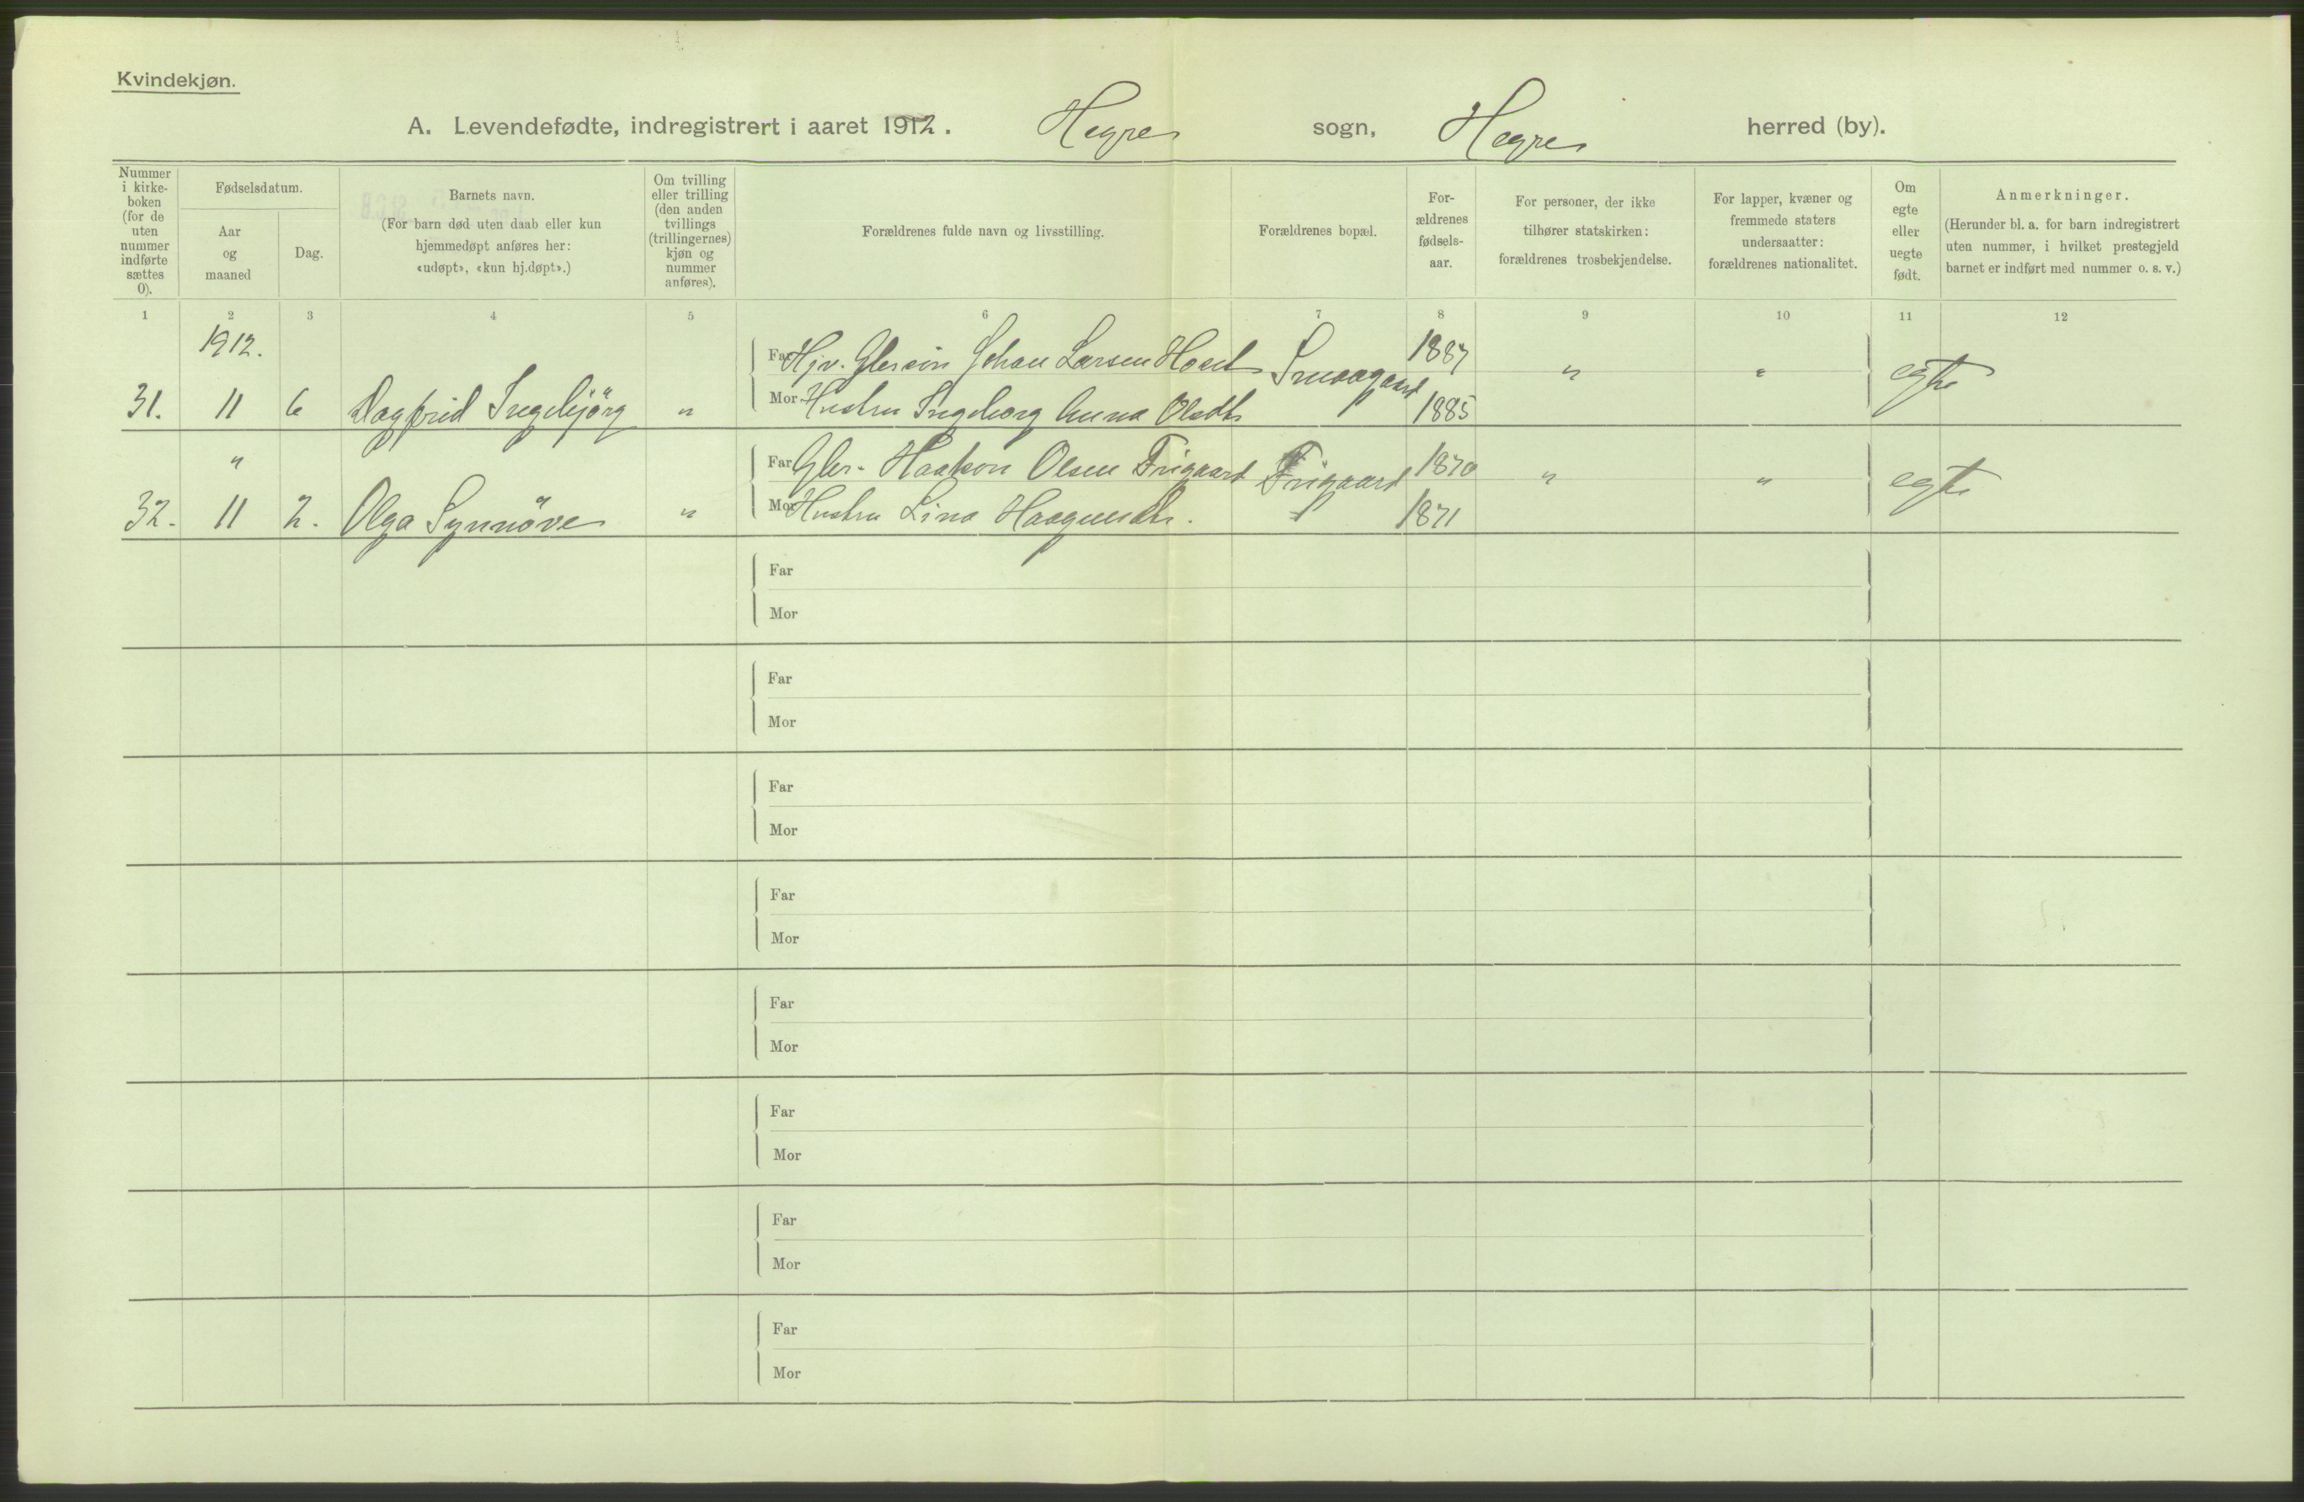 Kvindekjøn.
A. Levendefødte, indregistrert i aaret 1912. Hegre sogn, Hegre herred (by).
Nummer i kirke-boken (for de uten nummer indførte sættes 0).
Fødselsdatum.
Aar og maaned
Dag.
Barnets navn.
(For barn død uten daab eller kun hjemmedøpt anføres her: «udøpt», «kun hj.døpt».)
Om tvilling eller trilling (den anden tvillings (trillingernes) kjøn og nummer anføres).
Forældrenes fulde navn og livsstilling.
Forældrenes bopæl.
For-ældrenes fødsels-aar.
For personer, der ikke tilhører statskirken: forældrenes trosbekjendelse.
For lapper, kvæner og fremmede staters undersaatter: forældrenes nationalitet.
Om egte eller uegte født.
Anmerkninger.
(Herunder bl. a. for barn indregistrert uten nummer, i hvilket prestegjeld barnet er indført med nummer o. s. v.)
1 2 3 4 5 6 7 8 9 10 11 12
1912.
Far Johan Larsen 1887
31. 11 6 Dagfrid Ingebjörg " Smaagaard " " egte
Mor Hustru Ingeborg Anna Olsdtr 1885
"
Far Haakon Olsen Trøgaard 1870
32. 11 2. Olga Synnöve " " " egte
Mor Hustru Lina 1871
Far
Mor
Far
Mor
Far
Mor
Far
Mor
Far
Mor
Far
Mor
Far
Mor
Far
Mor